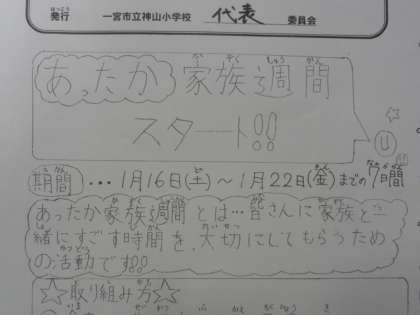 発行 一宮市立神山小学校 代表 委員会
あったか家族週間
スタート!!
期間…1月16日(土)～1月22日(金)までの7日間
あったか家族週間とは…皆さんに家族と一
緒にすごす時間を、大切にしてもらうため
の活動です!!
☆取り組み方☆